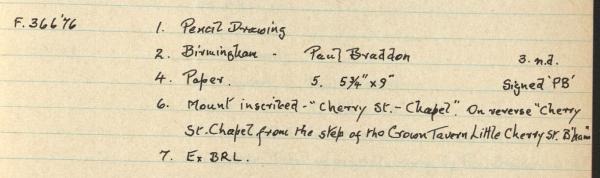 F.366'76 1. Pencil Drawing
2. Birmingham - Paul Braddon 3. n.d.
4. Paper. 5. 5¾" x 9" Signed 'PB'
6. Mount inscribed - "Cherry St. - Chapel". On reverse "Cherry
St. Chapel from the step of the Crown Tavern Little Cherry St. B'ham"
7. Ex BRL.